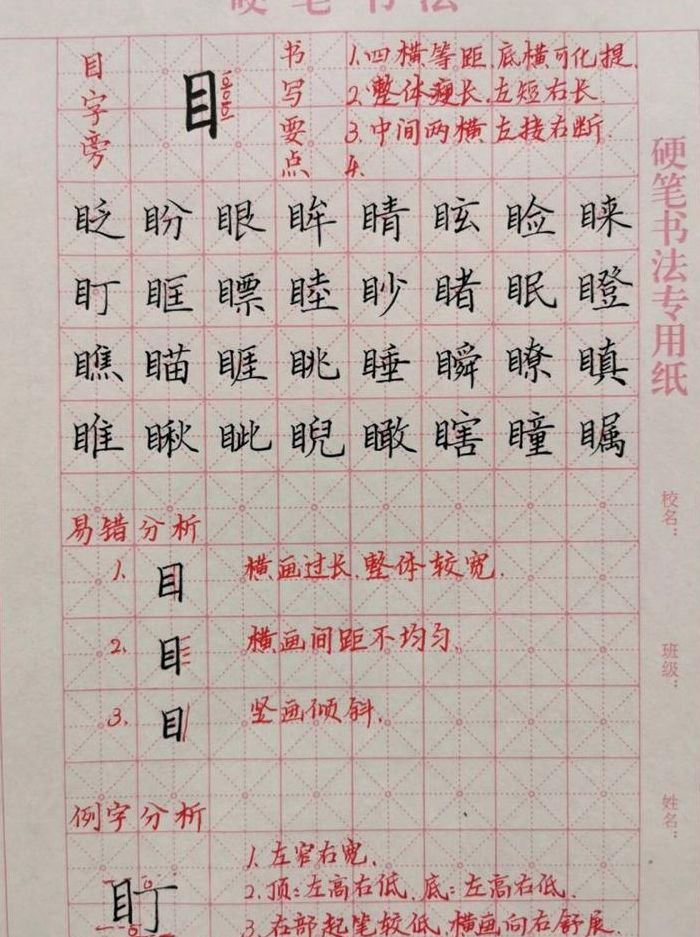 硬笔书法
目字旁
目
书写要点
1.四横等距.底横可化提.
2.整体瘦长.左短右长.
3.中间两横左接右断.
4.
眨 盼 眼 眸 睛 眩 睑 睐
盯 眶 瞟 睦 眇 睹 眠 瞪
瞧 瞄 睚 眺 睡 瞬 瞭 瞋
睢 瞅 眦 睨 瞰 瞎 瞳 瞩
易错分析
1. 目 横画过长.整体较宽.
2. 目 横画间距不均匀.
3. 目 竖画倾斜.
例字分析
盯
1.左窄右宽.
2.顶:左高右低.底:左高右低.
3.右部起笔较低.横画向右舒展.
硬笔书法专用纸
校名:
班级:
姓名: